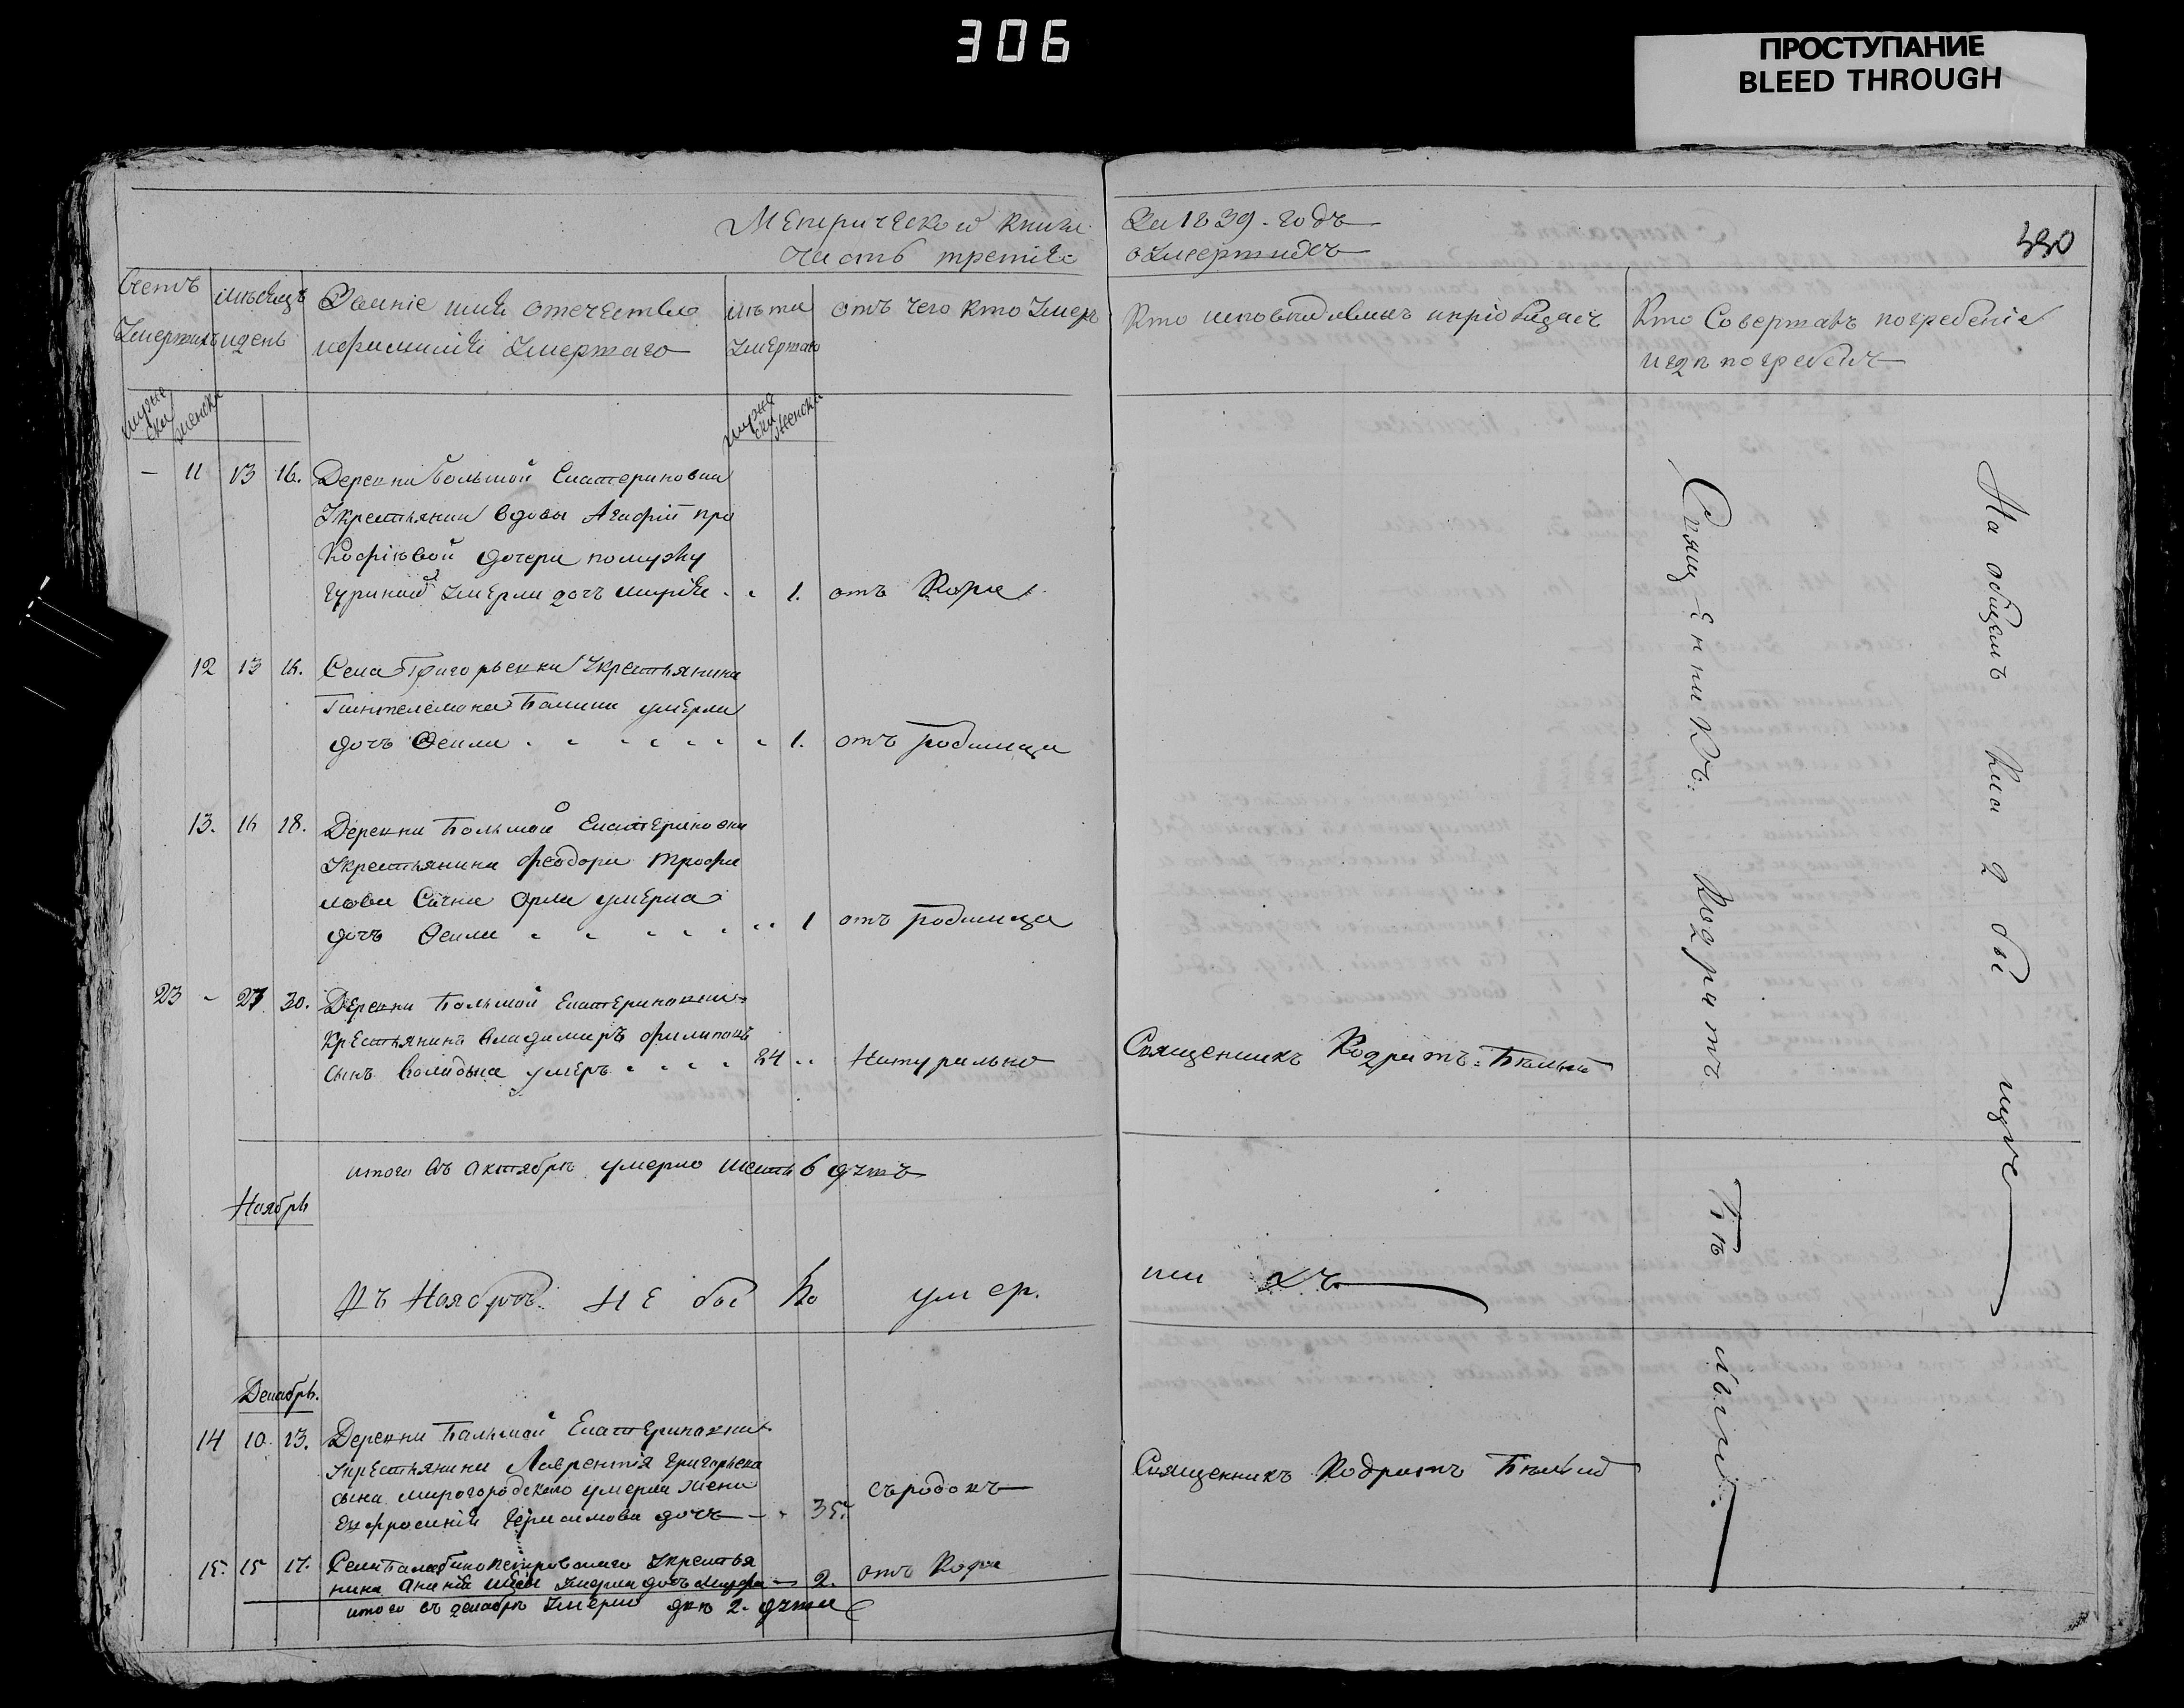 306
ПРОСТУПАНИЕ
BLEED THROUGH
Метрической книги
На 1839. годъ
Часть третія
о Умертихъ
330
Счетъ Умертихъ
мѣсецъ и день
Званіе имя отечество
и фамилія Умертаго
лѣта Умертаго
отъ чего кто Умеръ
Кто исповѣдивалъ и пріобщалъ
Кто Совершалъ погребеніе
и гдѣ погребенъ
мужеска
женска
мужеска
женска
— 11 13 16. Деревни Большой Екатериновки
У крестьянки вдовы Агафіи про
кофіевой дочери по мужу
умерла дочь Марія 1. отъ Кори
12 13 16. Села Григорьевки У крестьянина
Пантелемона умерла
дочь Фекла 1. отъ родимца
13. 16 18. Деревни Большой Екатериновки
У крестьянина Феодора Трофи
мова Сына Орла умерла
дочь Фекла 1 отъ родимца
23 - 27 30. Деревни Большой Екатериновки
Крестьянинъ Владимиръ Филиповъ
сынъ умеръ 84 Натурально
Священникъ Кодратъ Бѣлый
итого въ октябрѣ умерло шесть 6 душъ
Ноябрь
Въ Ноябрѣ НЕ бы ло умер.
ши хъ
Декабрь.
14 10 13. Деревни Большой Екатериновки
У крестьянина Лаврентія Григорьева
сына Мирогородского умерла жена
Евфросинія Герасимова дочь 35.
съ родовъ
Священникъ Кодратъ Бѣлый
15. 15 17. Села Петровскаго У крестья
нина Ананія умерла дочь 2. отъ Кори
итого въ декабрѣ Умерло двѣ 2. душы
Свящ Енни Къ. Кодратъ Бѣ лый.
На общемъ Кла д бы щѣ